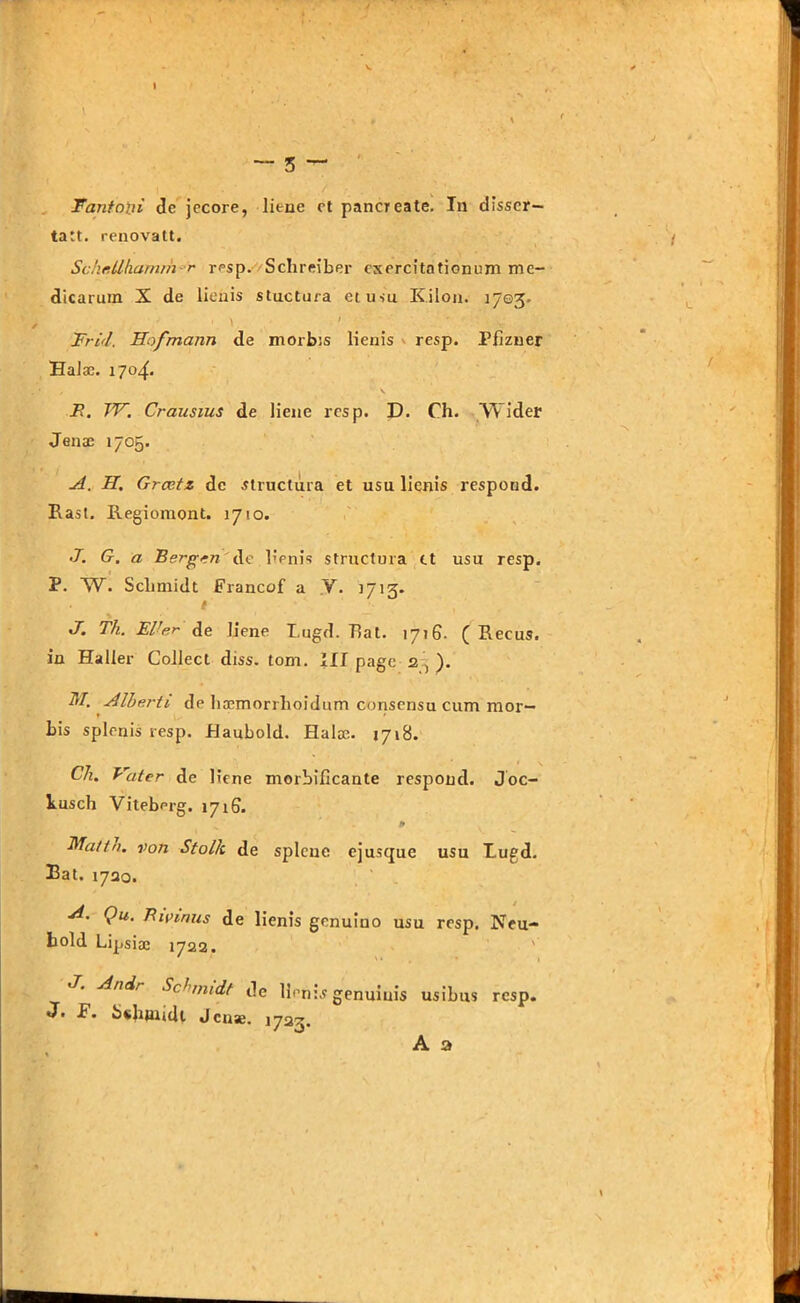 — 3 —
Fantoni de jecore, liene et pancreate. In disser-
tatt. renovatt.
Schellhammer resp. Schreiber exercitationum me-
dicarum X de lienis stuctura et usu Kilon. 1703.
Frid. Hofmann de morbis lienis resp. Pfizner
Halæ. 1704.
R. W. Crausius de liene resp. D. Ch. Wider
Jenæ 1705.
A. H. Grœtz de structura et usu lienis respond.
Rast. Regiomont. 1710.
J. G. a Bergen de lienis structura et usu resp.
P. W. Schmidt Francof a V. 1713.
J. Th. Eller de liene Lugd. Bat. 1716. ( Recus.
in Haller Collect diss. tom. III page 23 ).
M. Alberti de hæmorrhoidum consensu cum mor-
bis splenis resp. Haubold. Halæ. 1718.
Ch. Vater de liene morbificante respond. Joc-
kusch Viteberg. 1716.
Matth. von Stolk de splene ejusque usu Lugd.
Bat. 1720.
A. Qu. Rivinus de lienis genuino usu resp. Neu-
bold Lipsiæ 1722.
J. Andr Schmidt de lienis genuinis usibus resp.
J. F. Schmidt Jenæ. 1723.
A 2